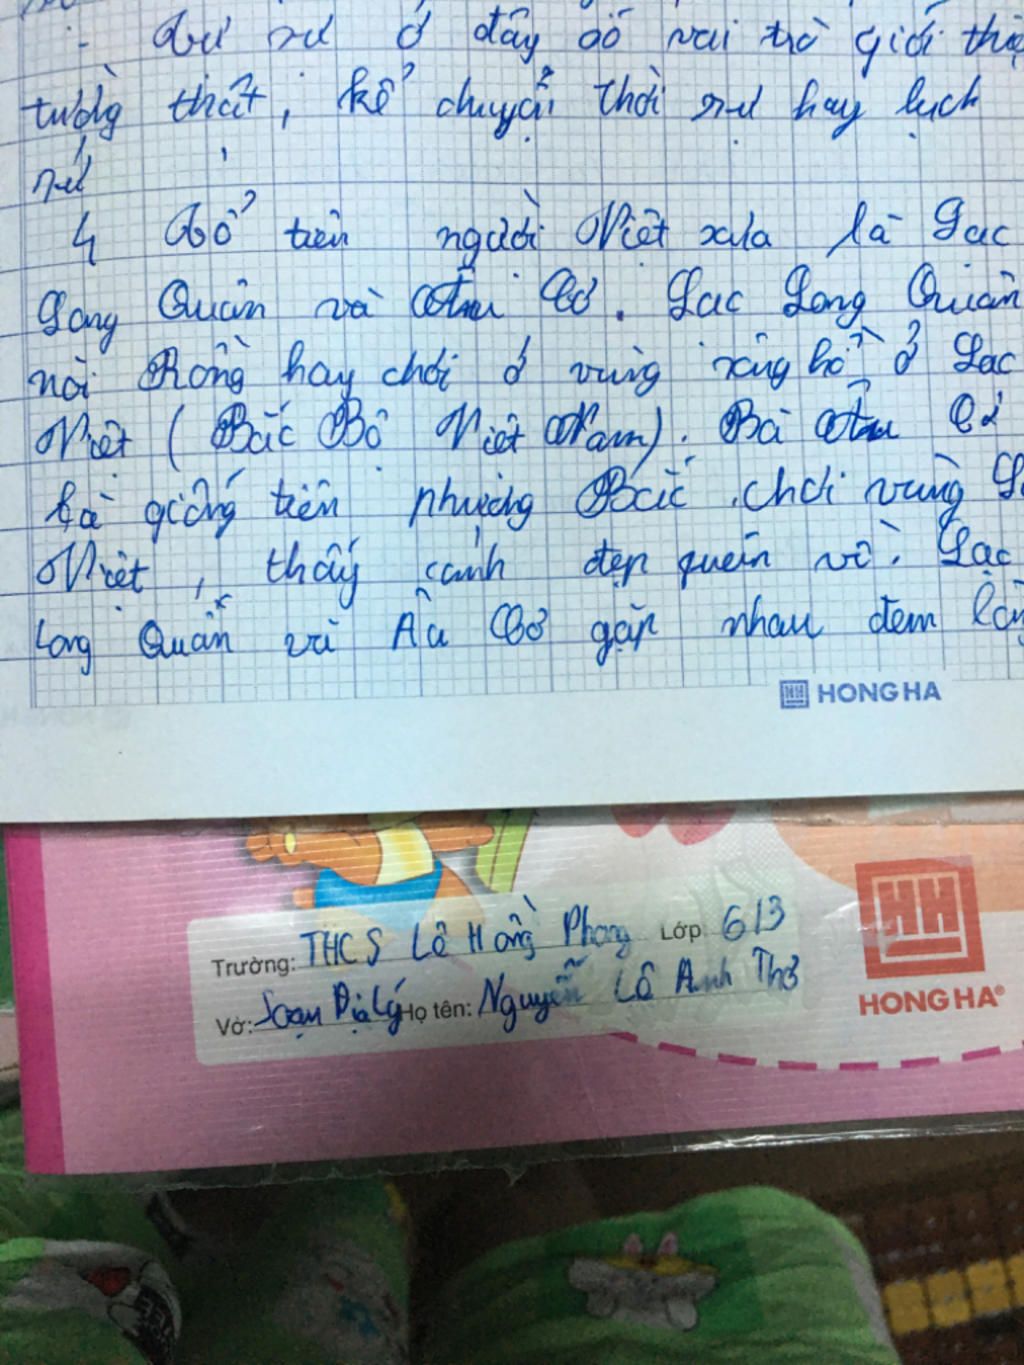 - Cư xử ở đây có vai trò giới thiệ
tường thuật, kể chuyện thời sự hay lịch
sử
4 Tổ tiên người Việt xưa là Lạc
Long Quân và Âu Cơ. Lạc Long Quân
nòi Rồng hay chơi ở vùng sông hồ ở Lạc
Việt (Bắc Bộ Việt Nam). Bà Âu Cơ
là giống tiên phương Bắc, chơi vùng
Việt, thấy cảnh đẹp quên về. Lạc
Long Quân và Âu Cơ gặp nhau đem
HONG HA
Trường: THCS Lê Hồng Phong Lớp: 6/3
Vở: Soạn Địa Lý Họ tên: Nguyễn Lê Anh Thơ
HONG HA®